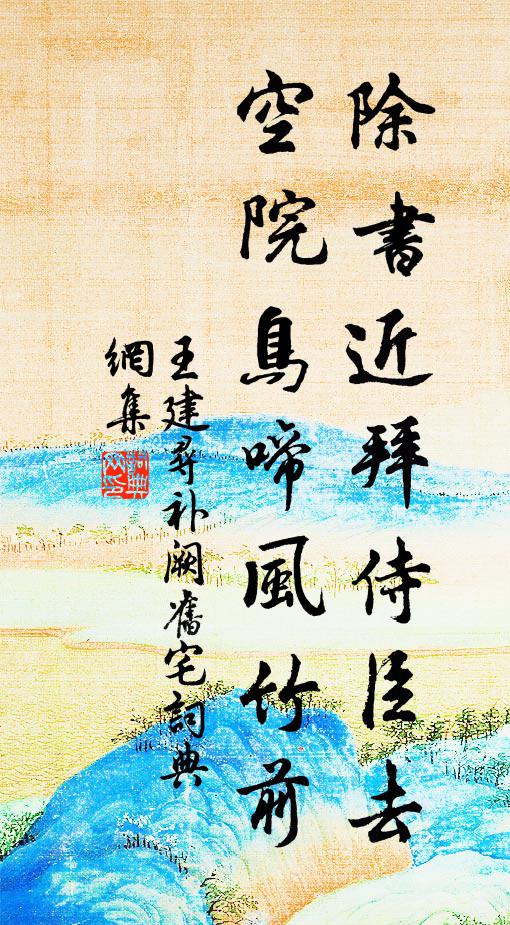 除書近拜侍臣去
空院鳥啼風竹前
王建尋补阙舊宅詞典
網集
詞典